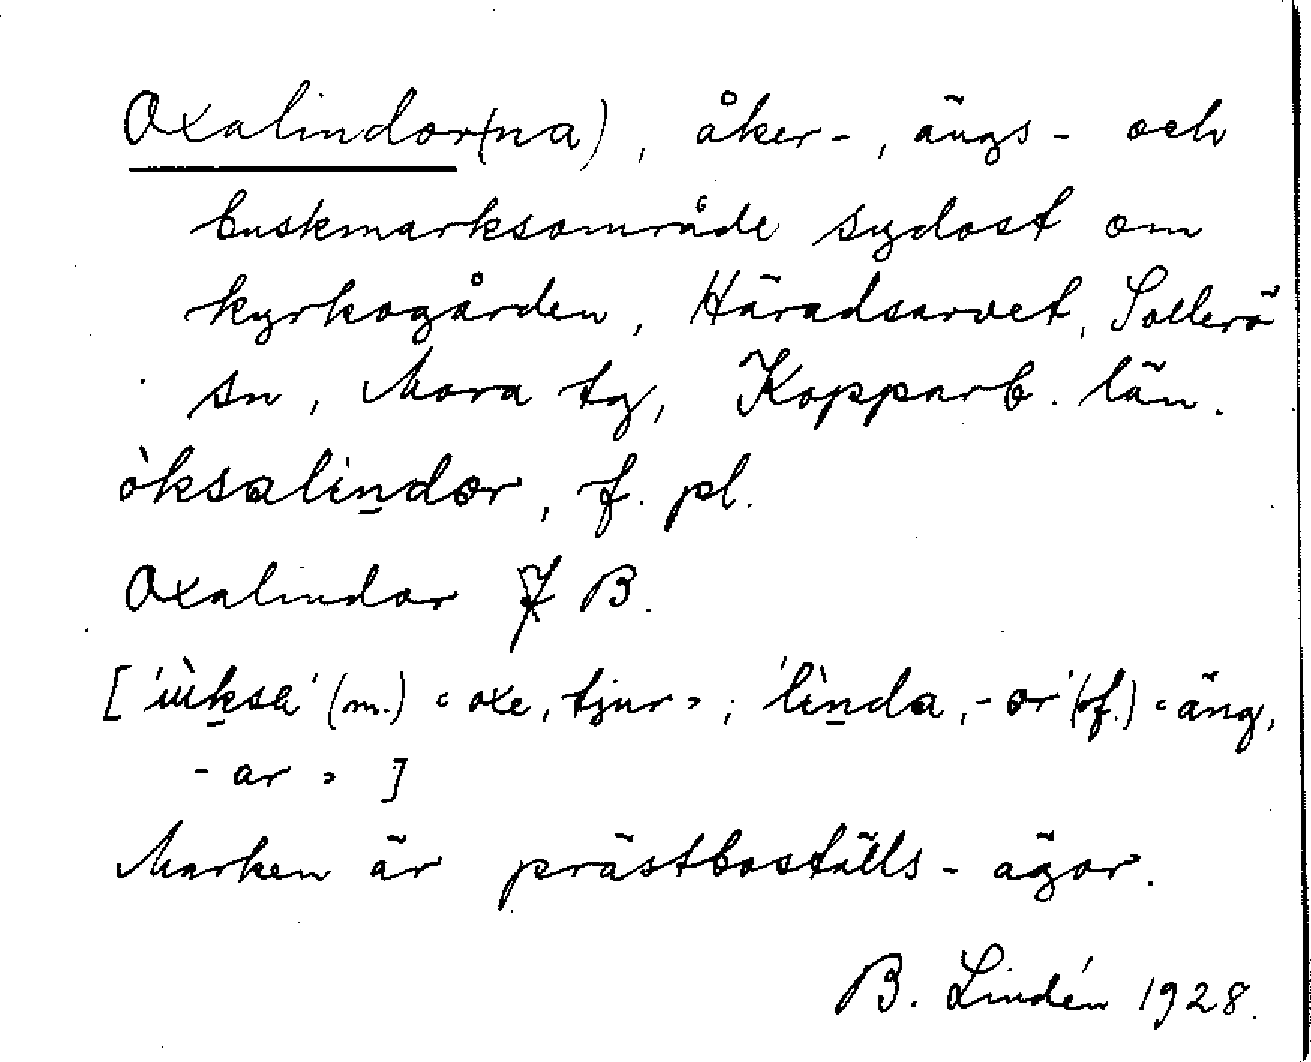 Oxalindor(na), åker-, ängs- och
buskmarksområde sydost om
kyrkogården, Häradsarvet, Sollerö
sn, Mora tg, Kopparb. län.
òksalìṉdor, f. pl.
Oxalindor JB.
['ùḵsa' (m.) «oxe, tjur»; 'lìṉda, -or' (f.) «äng,
-ar»]
Marken är prästboställs-ägor.
B. Lindén 1928.